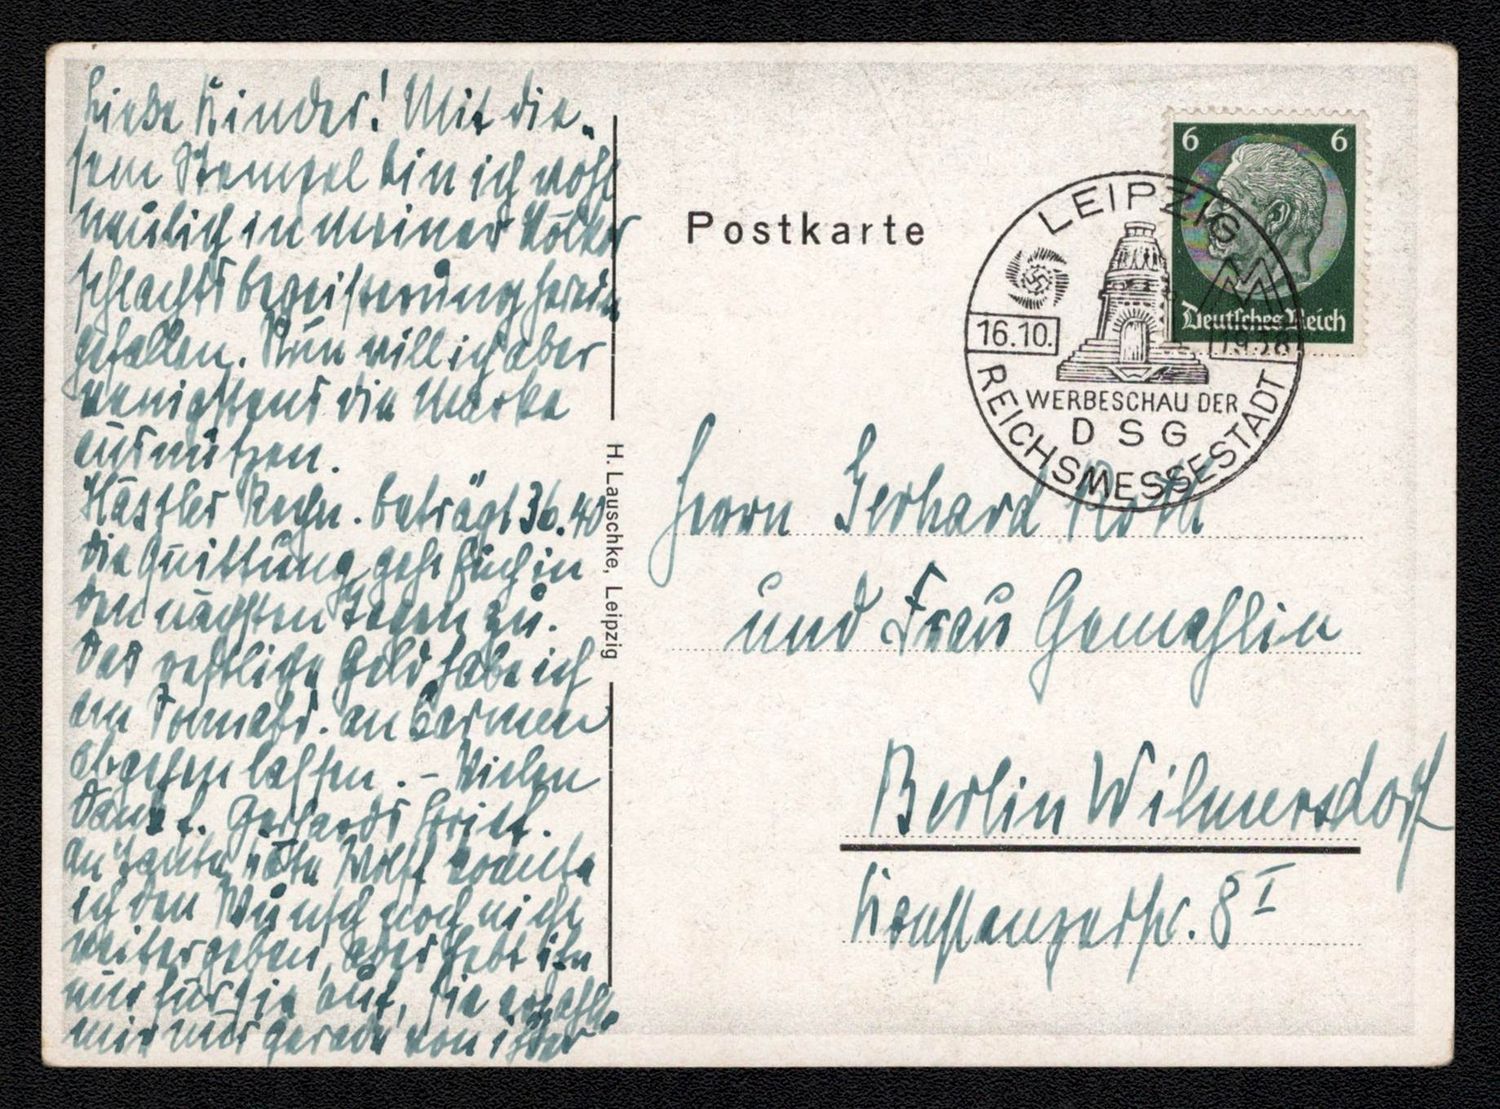 Liebe Kinder! Mit die-
sem Stempel bin ich wohl
neulich in meiner Völker
schlachtsbegeisterung herein
gefallen. Nun will ich aber
wenigstens die Marke
ausnutzen.
Rechn. beträgt 36.40
die Quittung geht Euch in
den nächsten Tagen zu.
Das restliche Geld habe ich
am Sonnabd. an Carmen
abgehen lassen. – Vielen
Dank f. Gerhards Brief.
An Tante Wolff konnte
ich den Wunsch noch nicht
weitergeben, aber hebt ihn
nur für sie auf, sie erzählte
mir nur gerade von ihrer
Postkarte
H. Lauschke, Leipzig
6 6
Deutsches Reich
LEIPZIG
16.10. 1938
WERBESCHAU DER
DSG
REICHSMESSESTADT
Herrn Gerhard Roth
und Frau Gemahlin
Berlin Wilmersdorf
Konstanzerstr. 8 I